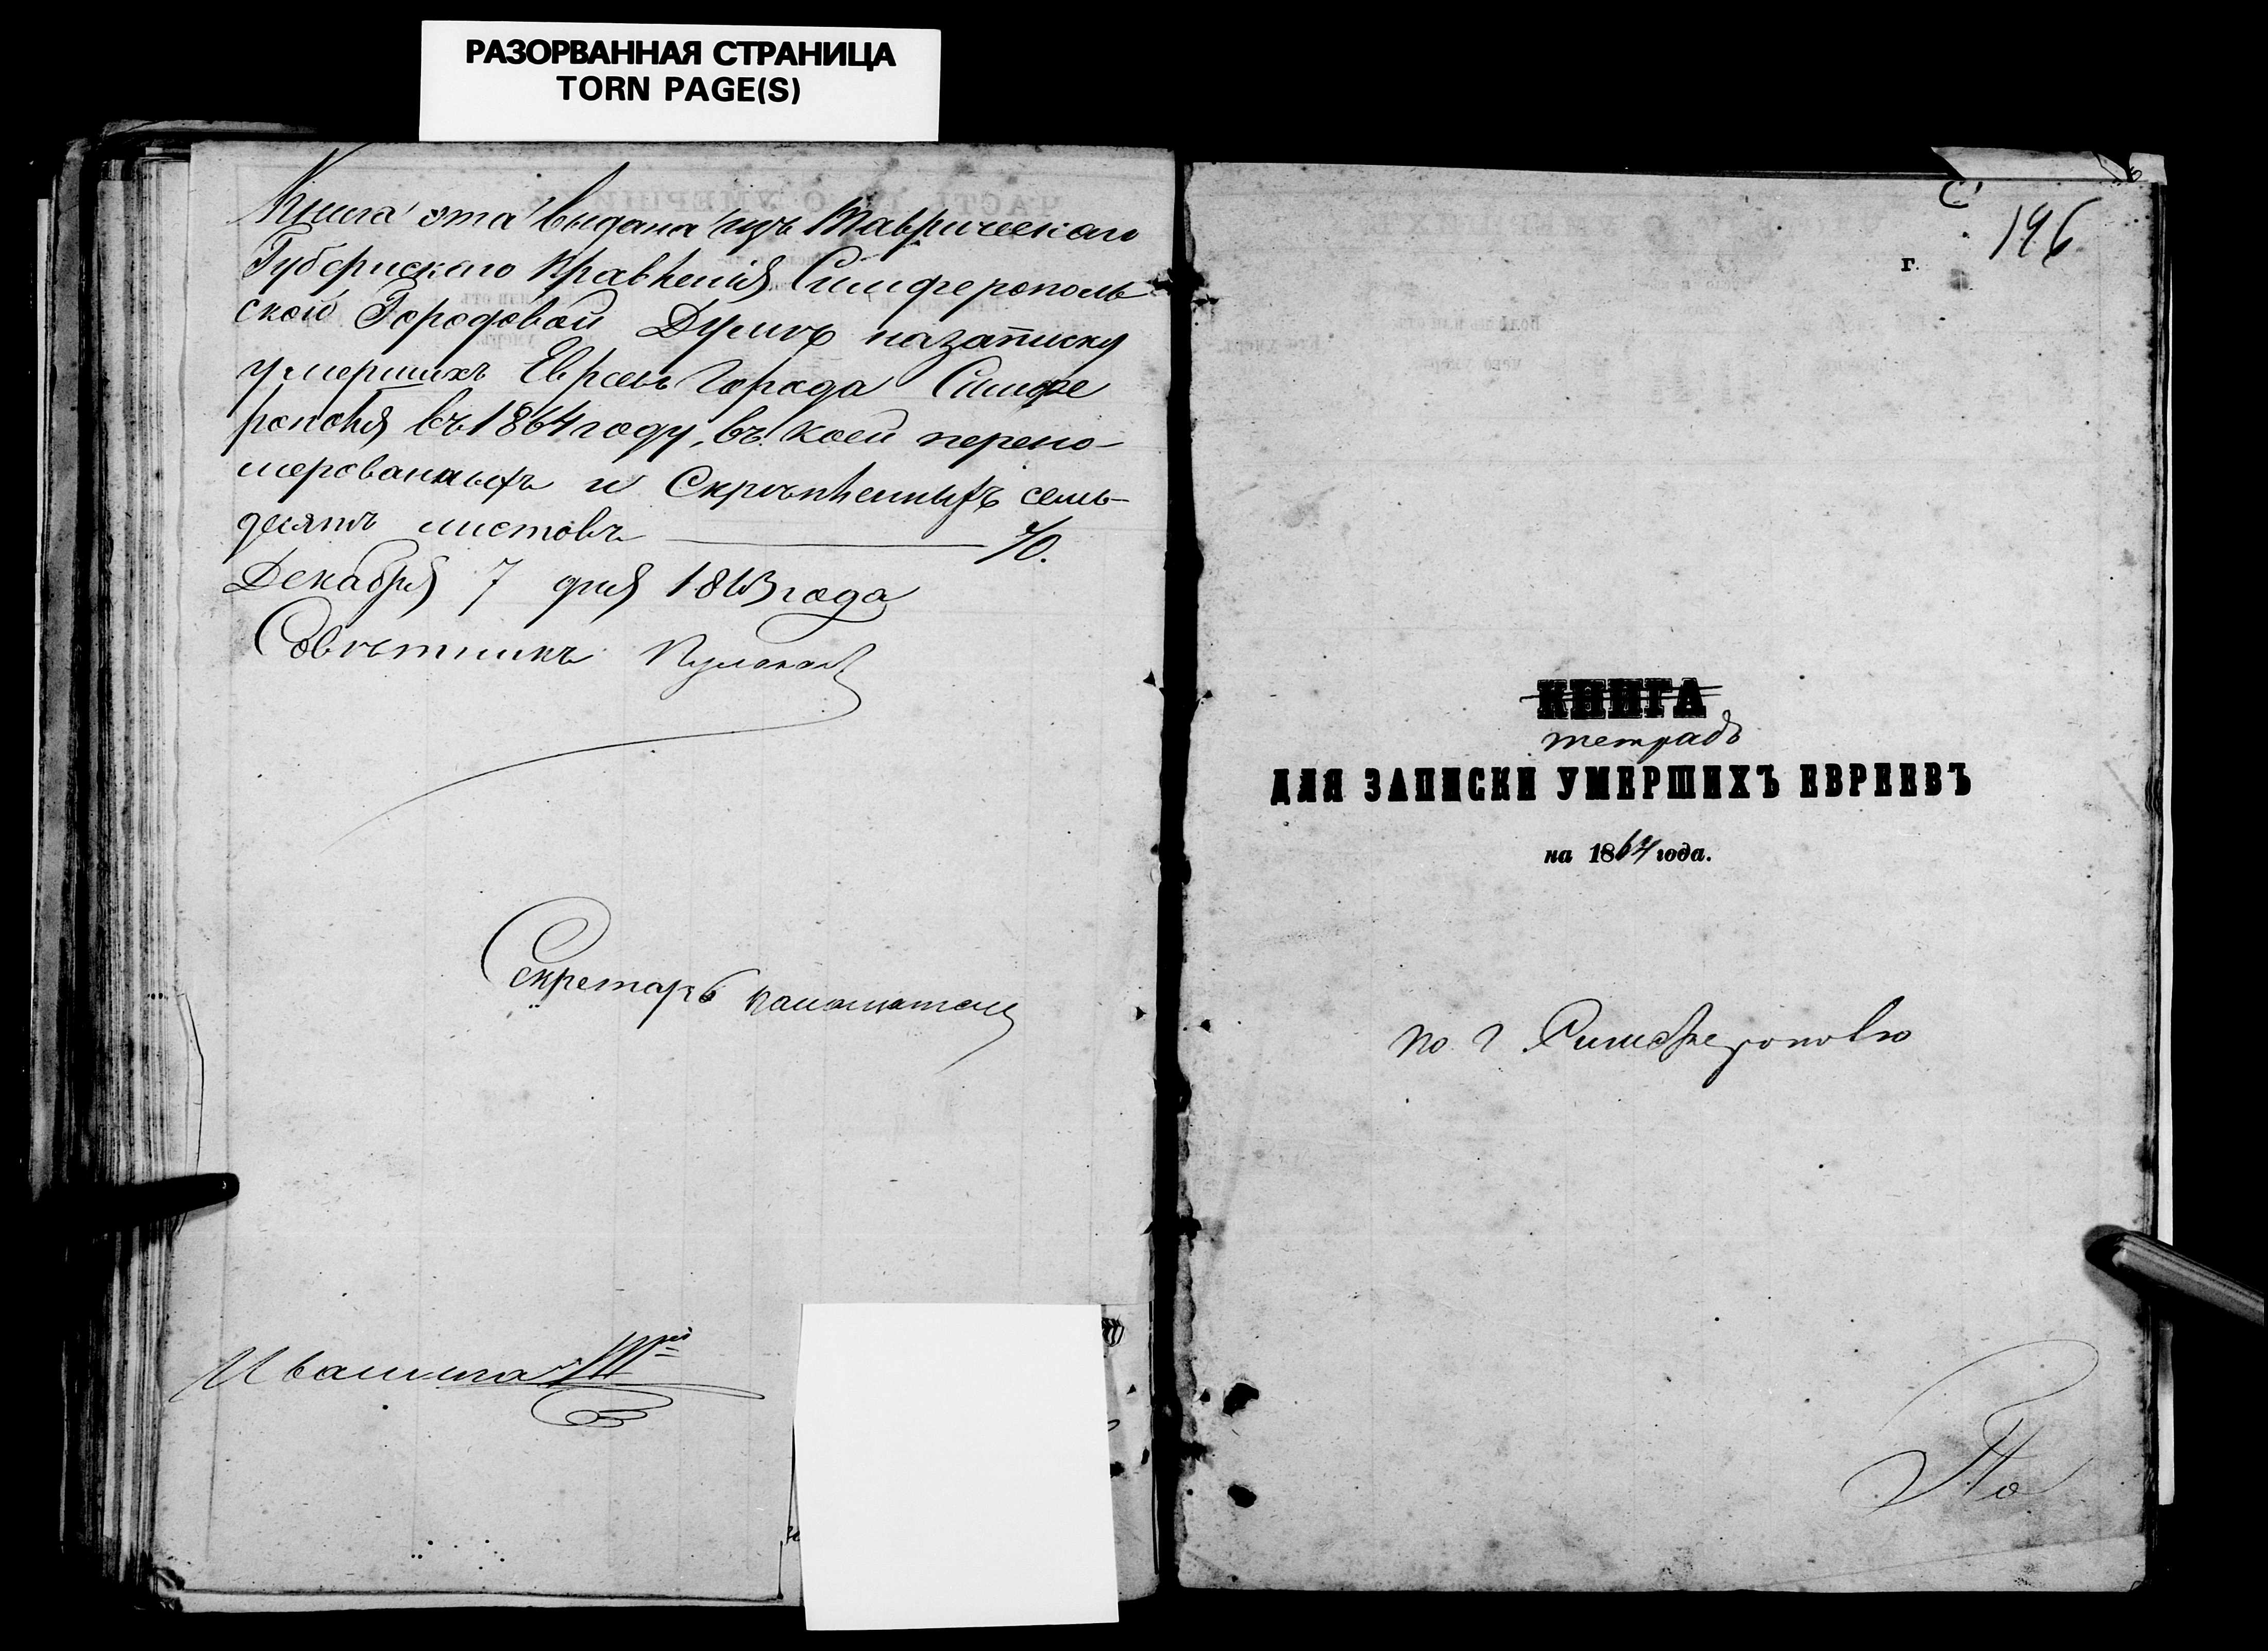 РАЗОРВАННАЯ СТРАНИЦА
TORN PAGE(S)
Книга эта выдана изъ Таврическаго
Губернскаго Правленія Симферополь
ской Городовой Думѣ на записку
умершихъ Евреевъ города Симфе
рополя въ 1864 году, въ коей перено-
мерованныхъ и Скрѣпленныхъ семь-
десятъ листовъ 70.
Декабря 7 дня 1863 года
Совѣтникъ
Секретарь
196
г.
КНИГА
тетрадь
ДЛЯ ЗАПИСКИ УМЕРШИХЪ ЕВРЕЕВЪ
на 1864 года.
по г Симферополю
По